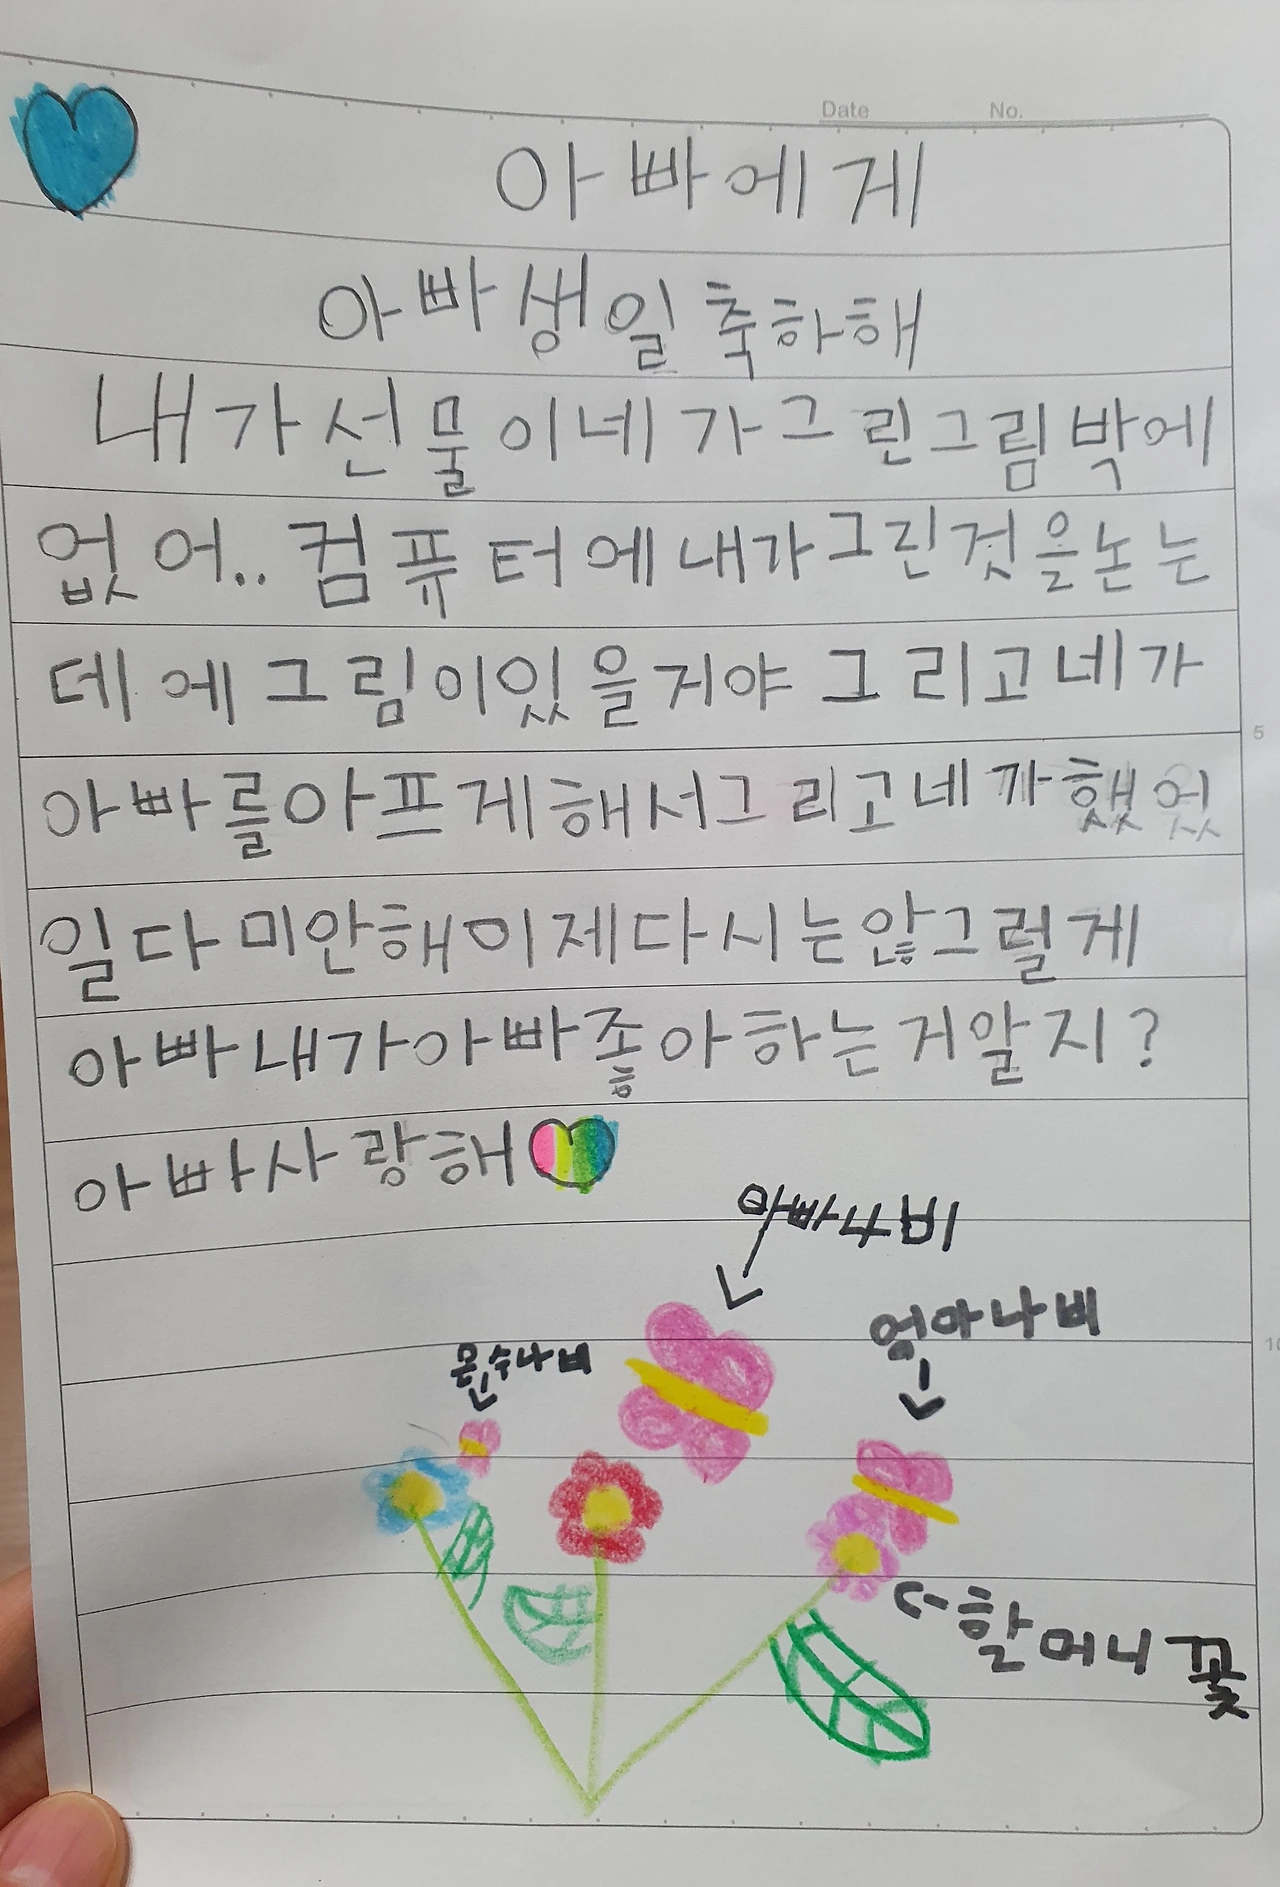 Date No.
아빠에게
아빠생일축하해
내가선물이네가그린그림밖에
없어.. 컴퓨터에내가그린것을논는
데에그림이있을지야그리고네가
아빠를아프게해서그리고네가했
일다미안해이제다시는않그럴게
아빠내가아빠좋아하는거알지?
아빠사랑해
아빠나비
엄마나비
은수나비
할머니꽃
5
10